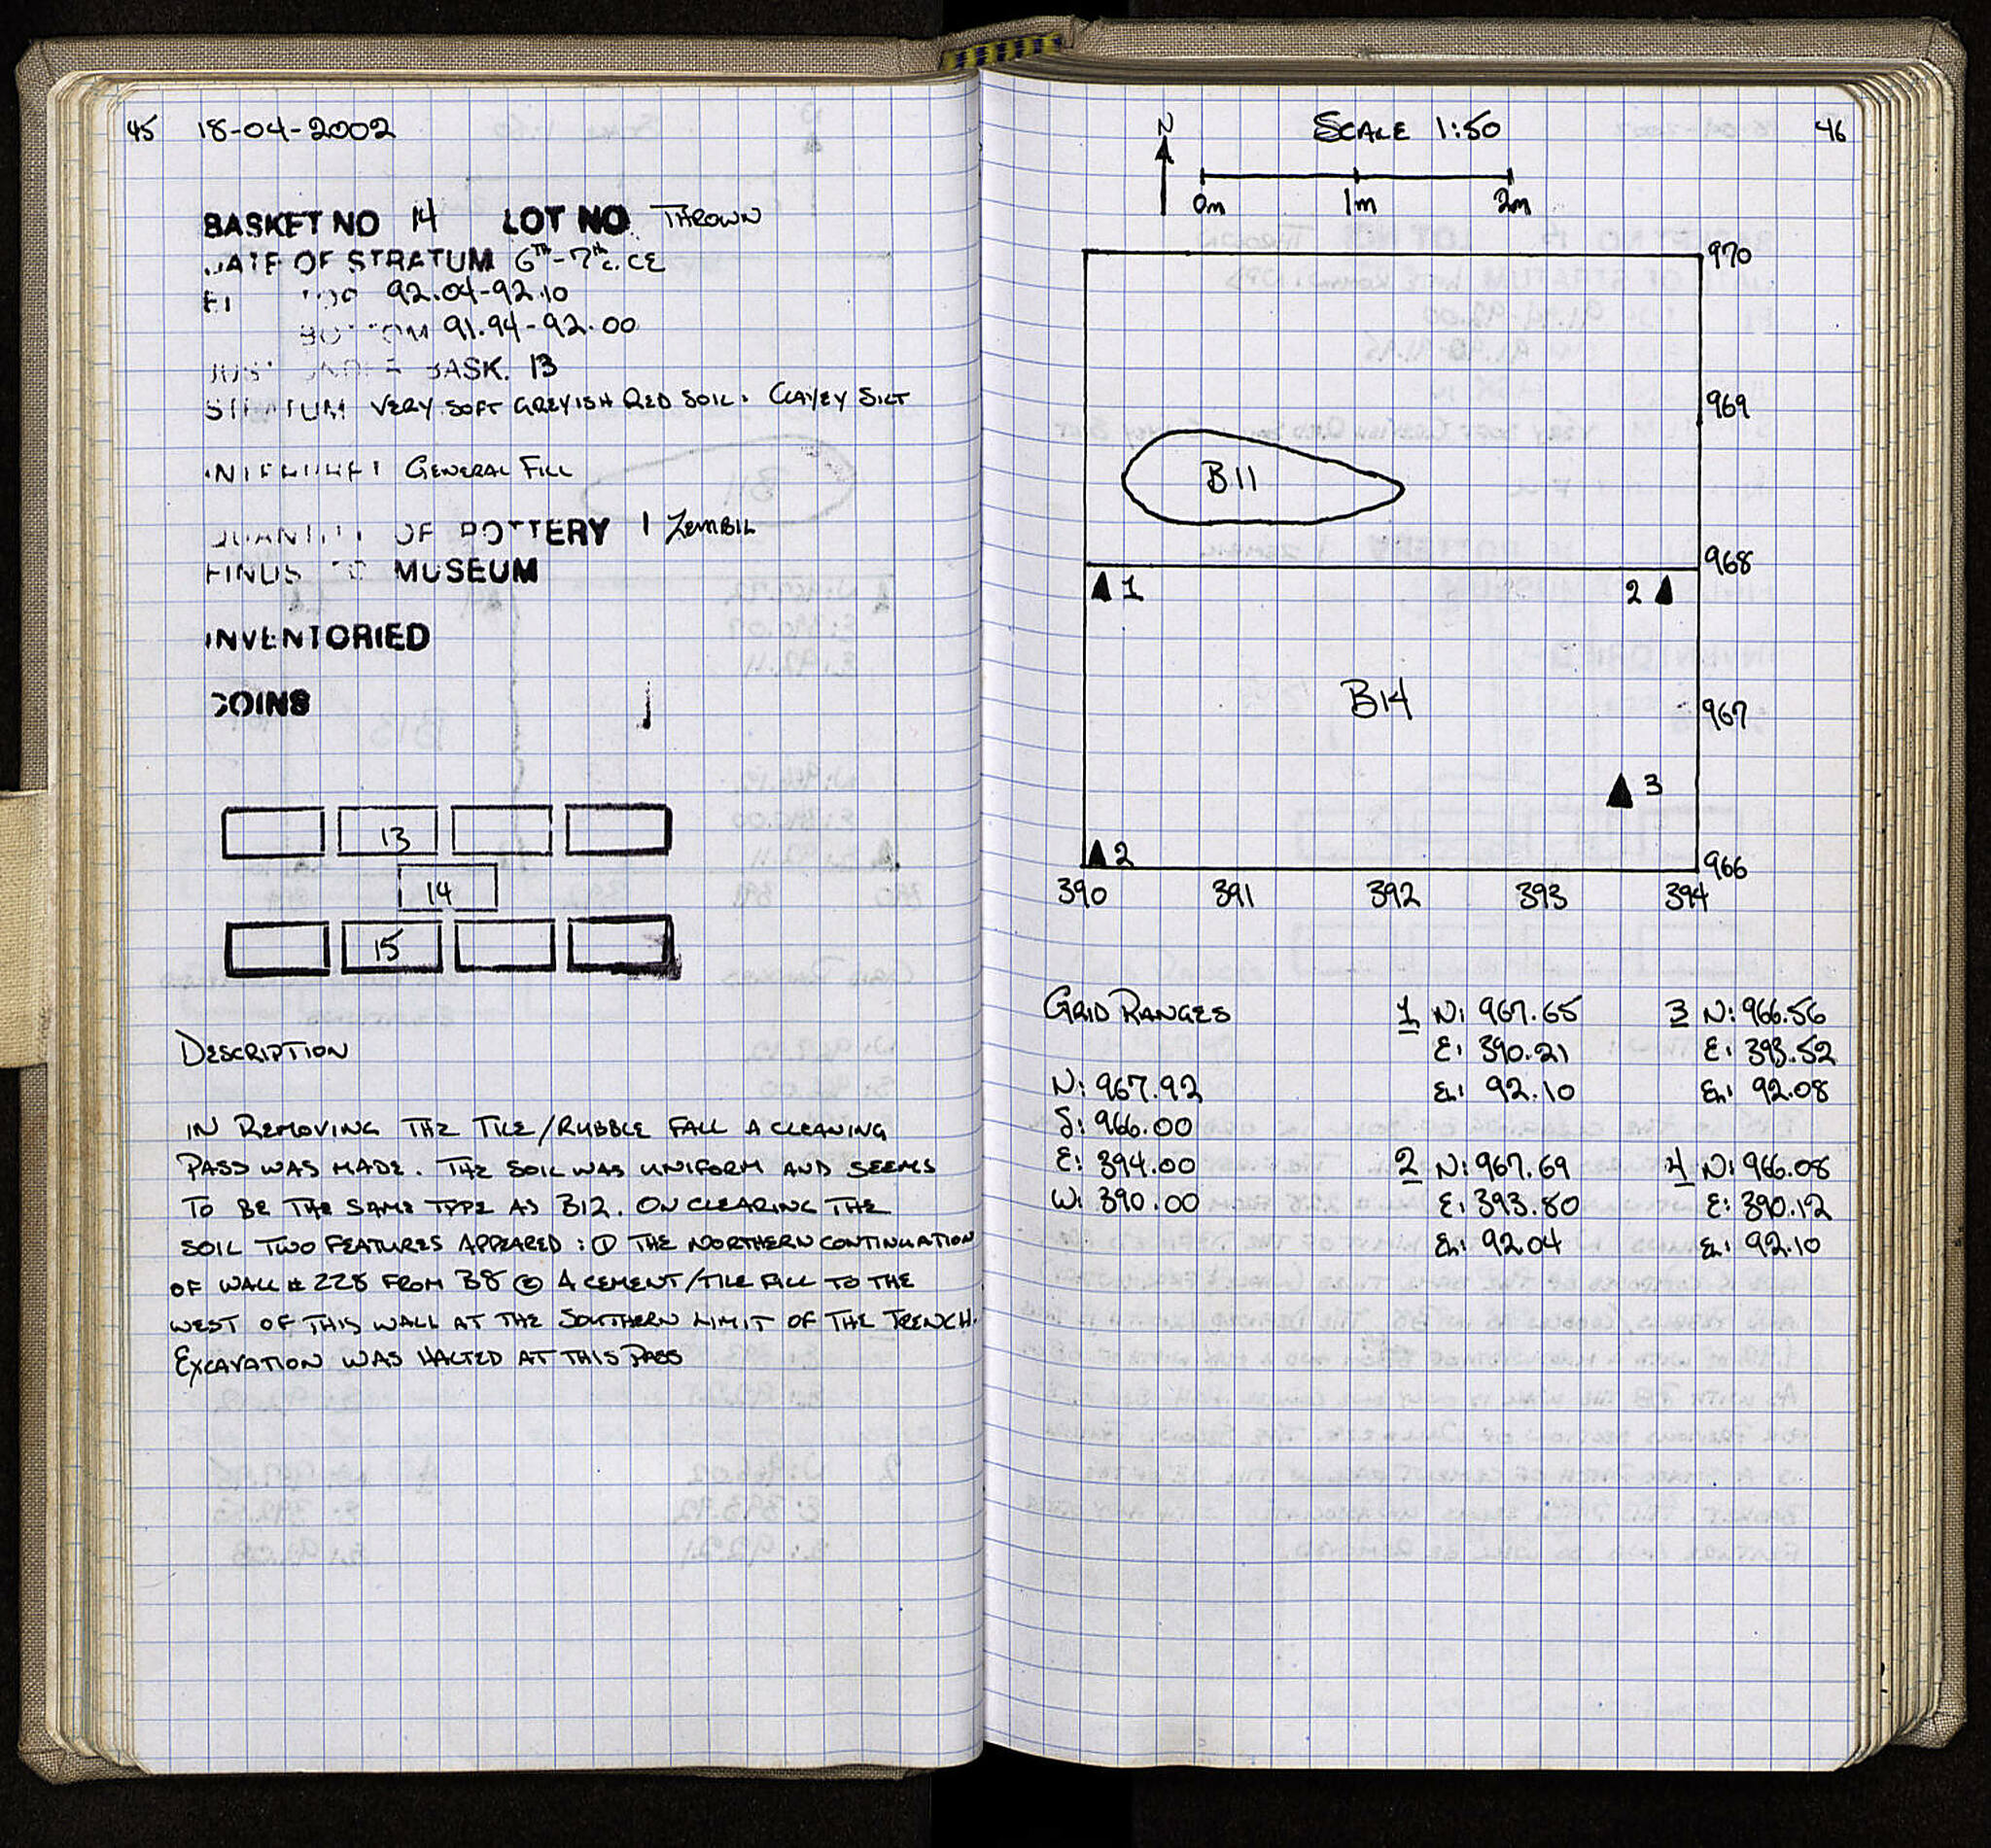 45 18-04-2002
BASKET NO 14 LOT NO THROWN
DATE OF STRATUM 6TH-7th c. CE
El TOP 92.04-92.10
BOTTOM 91.94-92.00
JUST UNDER BASK. 13
STRATUM VERY SOFT GREYISH RED SOIL. CLAYEY SILT
INTERPRET GENERAL FILL
QUANTITY OF POTTERY 1 ZEMBIL
FINDS TO MUSEUM
INVENTORIED
COINS
13
14
15
DESCRIPTION
IN REMOVING THE TILE/RUBBLE FALL A CLEANING
PASS WAS MADE. THE SOIL WAS UNIFORM AND SEEMS
TO BE THE SAME TYPE AS B12. ON CLEARING THE
SOIL TWO FEATURES APPEARED: ① THE NORTHERN CONTINUATION
OF WALL # 228 FROM B8 ② A CEMENT/TILE FALL TO THE
WEST OF THIS WALL AT THE SOUTHERN LIMIT OF THE TRENCH.
EXCAVATION WAS HALTED AT THIS PASS
N SCALE 1:50 46
0m 1m 2m
970
969
B11
968
1 2
B14
967
3
2
966
390 391 392 393 394
GRID RANGES
N: 967.92
S: 966.00
E: 394.00
W: 390.00
1 N: 967.65
E: 390.21
El: 92.10
2 N: 967.69
E: 393.80
El: 92.04
3 N: 966.56
E: 393.52
El: 92.08
4 N: 966.08
E: 390.12
El: 92.10